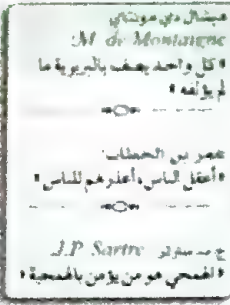 ميشال دي مونتاي
M. de Montaigne
« كل واحد يصف بالبربرية ما
لم يؤلفه »
عمر بن الخطاب
« أعقل الناس أعذرهم للناس »
ج. پ. سارتر J.P Sartre
« الهمجي هو من يؤمن بالهمجية »